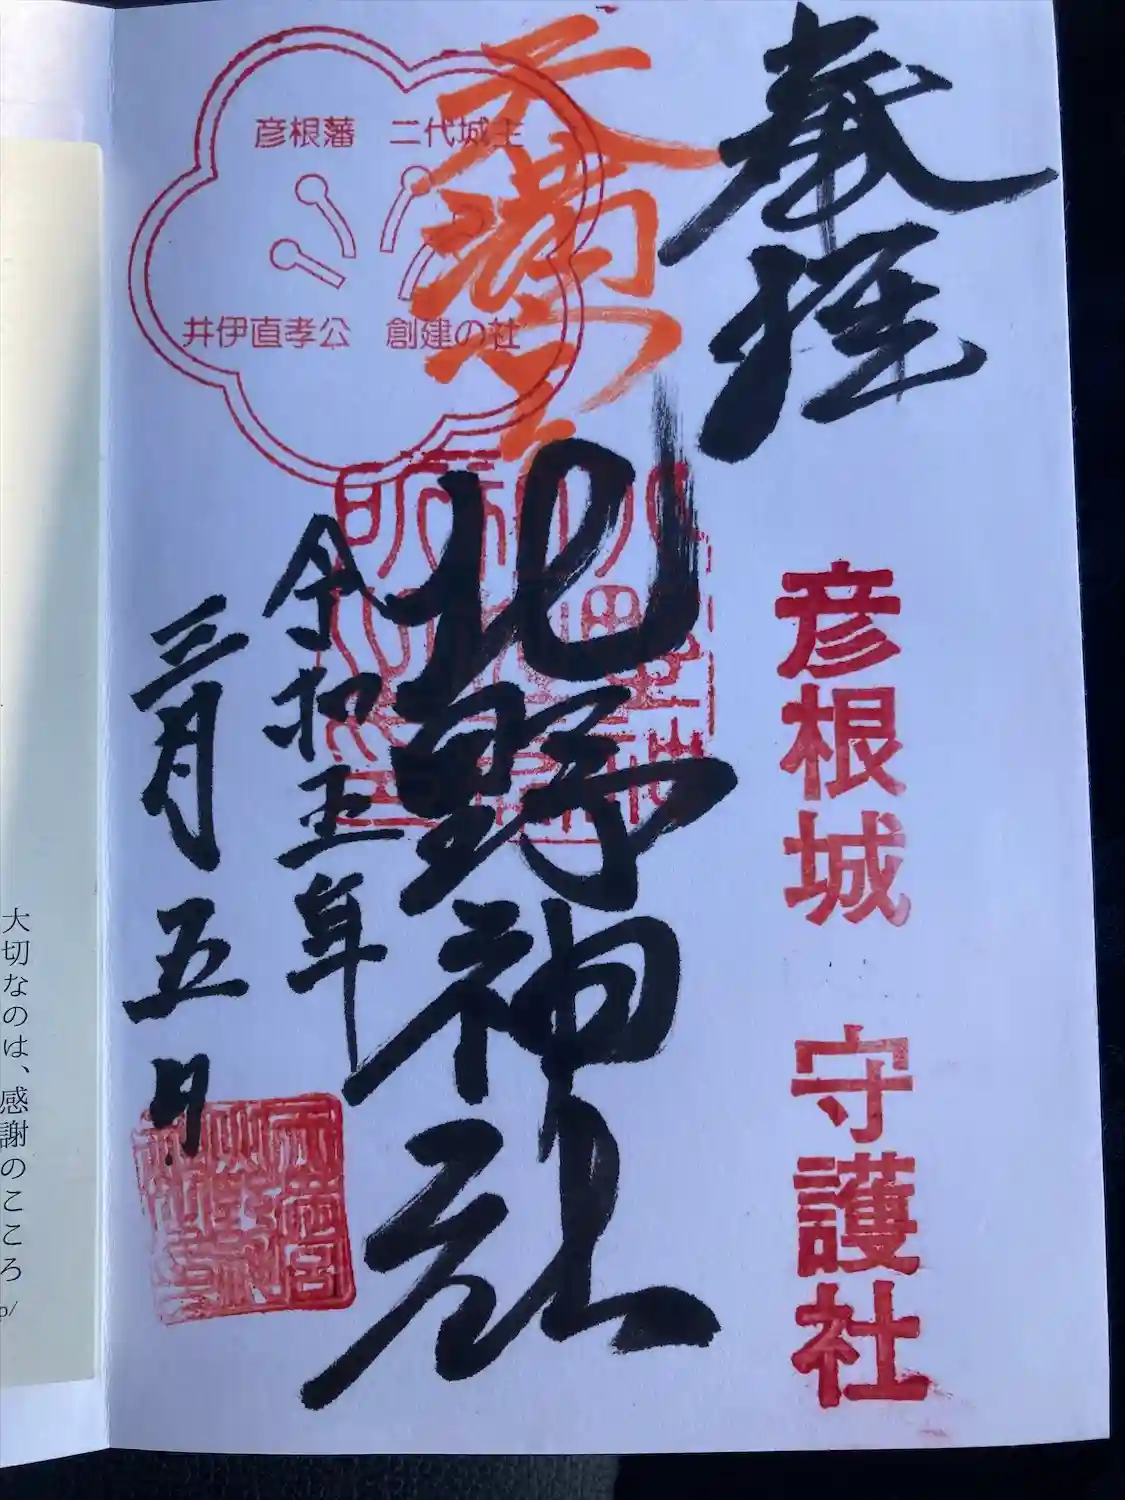 奉拝
彦根城 守護社
天満宮
北野神社
令和五年
三月五日
彦根藩 二代城主
井伊直孝公 創建の社
大切なのは、感謝のこころ
p/